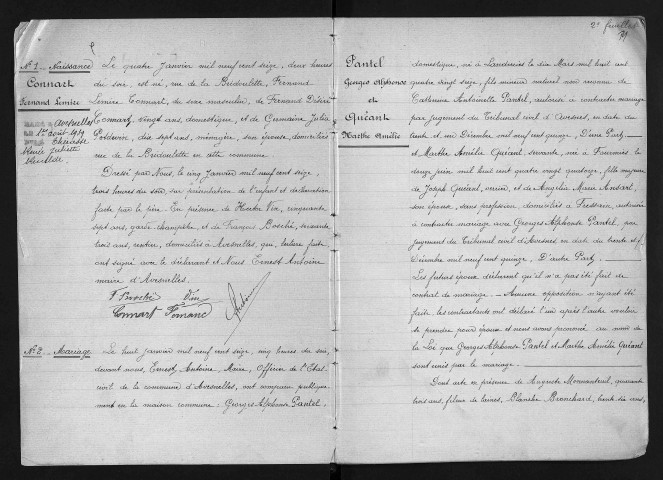 Nº 1 _ Naissance
Connart
Fernand Lemire
Avesnelles
le 1er août 1939
Juliette
Le quatre Janvier mil neuf cent seize, deux heures
du soir, est né, rue de la Bredoulette, Fernand
Lemire Connart, du sexe masculin, de Fernand Désiré
Connart, vingt ans, domestique, et de Germaine Julia
Potdevin, dix sept ans, ménagère, son épouse, domiciliés
rue de la Bredoulette en cette commune.
Dressé par Nous, le cinq Janvier mil neuf cent seize,
trois heures du soir, sur présentation de l'enfant et déclaration
faite par le père. En présence de Hector Vin, cinquante
sept ans, garde champêtre, et de François Bosché, soixante
trois ans, rentier, domiciliés à Avesnelles, qui, lecture faite
ont signé avec le déclarant et Nous Ernest Antoine
maire d'Avesnelles.
Vin
Connart Fernand
Nº 2 _ Mariage
Le huit Janvier mil neuf cent seize, cinq heures du soir,
devant nous, Ernest Antoine, Maire, Officier de l'Etat-
civil de la commune d'Avesnelles, ont comparu publique-
ment en la maison commune : Georges Alphonse Pantel,
2e feuillet
Pantel
Georges Alphonse
et
Quéant
Marthe Amélie
domestique, né à Landrecies le dix Mars mil huit cent
quatre vingt seize, fils mineur naturel non reconnu de
Catherine Antoinette Pantel, autorisé à contracter mariage
par jugement du Tribunal civil d'Avesnes, en date du
trente et un Décembre mil neuf cent quinze, D'une Part;
et Marthe Amélie Quéant, servante, née à Fourmies le
douze juin mil huit cent quatre vingt quatorze, fille majeure
de Joseph Quéant, ouvrier, et de Angèle Marie Ansart,
son épouse, sans profession, domiciliés à Fressain, autorisée
à contracter mariage avec Georges Alphonse Pantel, par
jugement du Tribunal civil d'Avesnes en date du trente et un
Décembre mil neuf cent quinze, D'autre Part;
Les futurs époux déclarent qu'il n'a pas été fait de
contrat de mariage. _ Aucune opposition n'ayant été
faite, les contractants ont déclaré l'un après l'autre vouloir
se prendre pour époux et nous avons prononcé au nom de
la Loi que Georges Alphonse Pantel et Marthe Amélie Quéant
sont unis par le mariage.
Dont acte en présence de Auguste quarante
trois ans, fileur de laines, Blanche Branchard, trente six ans,